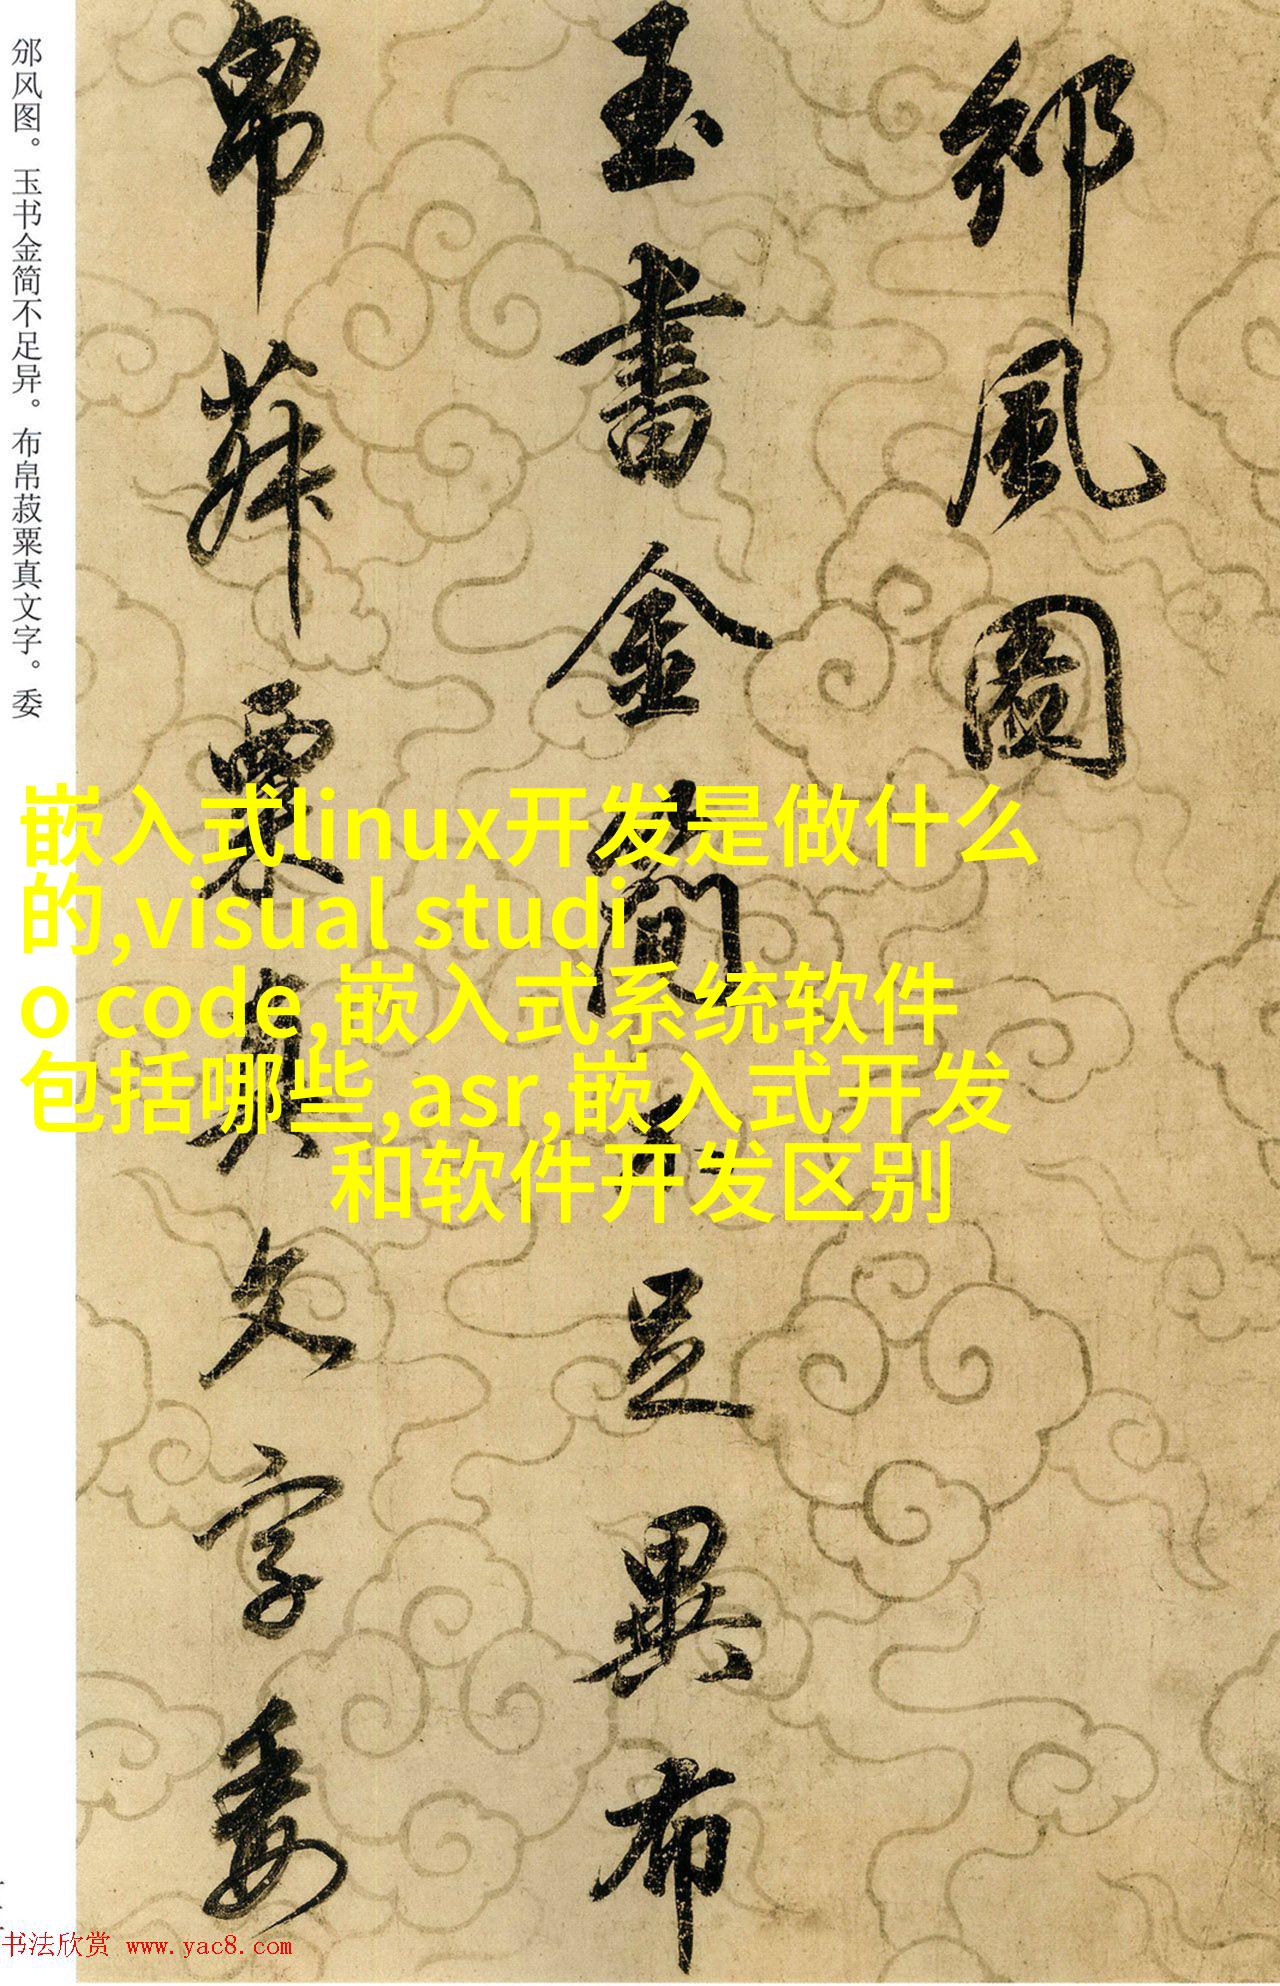 邠風圖
玉書金簡不足異布
帛菽粟真文字委
邠风图。玉书金简不足异。布帛菽粟真文字。委
嵌入式linux开发是做什么
的,visual studi
o code,嵌入式系统软件
包括哪些,asr,嵌入式开发
和软件开发区别
书法欣赏 www.yac8.com